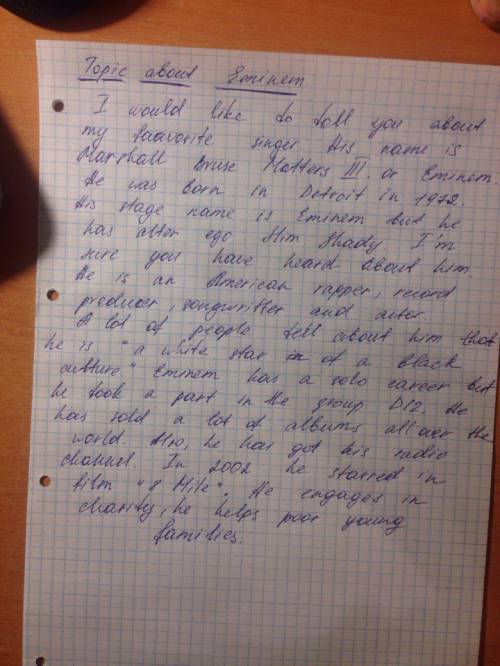 Topic about Eminem
I would like to tell you about
my faavorite singer. His name is
Marshall Bruse Matters III. or Eminem.
He was born in Detroit in 1972.
His stage name is Eminem but he
has alter ego Slim Shady. I'm
sure you have heard about him.
He is an American rapper, record
producer, songwritter and actor.
A lot of people tell about him that
he is "a white star in of a black
culture" Eminem has a solo career but
he took a part in the group D12. He
has sold a lot of albums all over the
world. Also, he has got his radio
channel. In 2002 he starred in
film "8 Mile". He engages in
charity, he helps poor young
families.